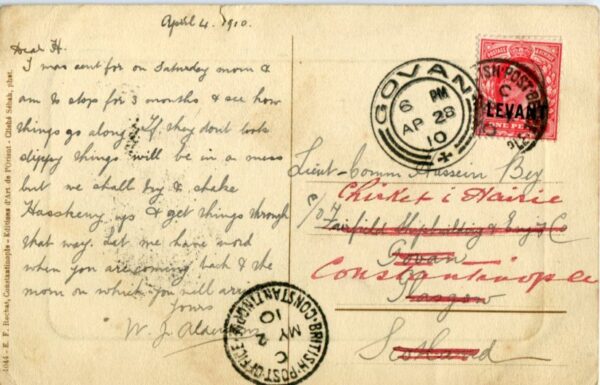 April 4. 1910.
Dear H.
I was sent for on Saturday morn &
am to stop for 3 months & see how
things go along. If they dont look
slippy things will be in a mess
but we shall try & shake
up & get things through
that way. Let me have word
when you are coming back & the
mom on which you will arr
Yours
W. J.
1044 - E. F. Rochat, Constantinople - Editions d'Art de l'Orient - Cliché Sébah, phot.
GOVAN
6 PM
AP 28
10
BRITISH POST OFFICE
C
LEVANT
ONE PENNY
Lieut-Comm Hussein Bey
Chirket i Hairie
c/o Fairfield Shipbuilding & Eng Co
Govan
Constantinople
Glasgow
Scotland
BRITISH POST OFFICE CONSTANTINOPLE
C
MY 2
10